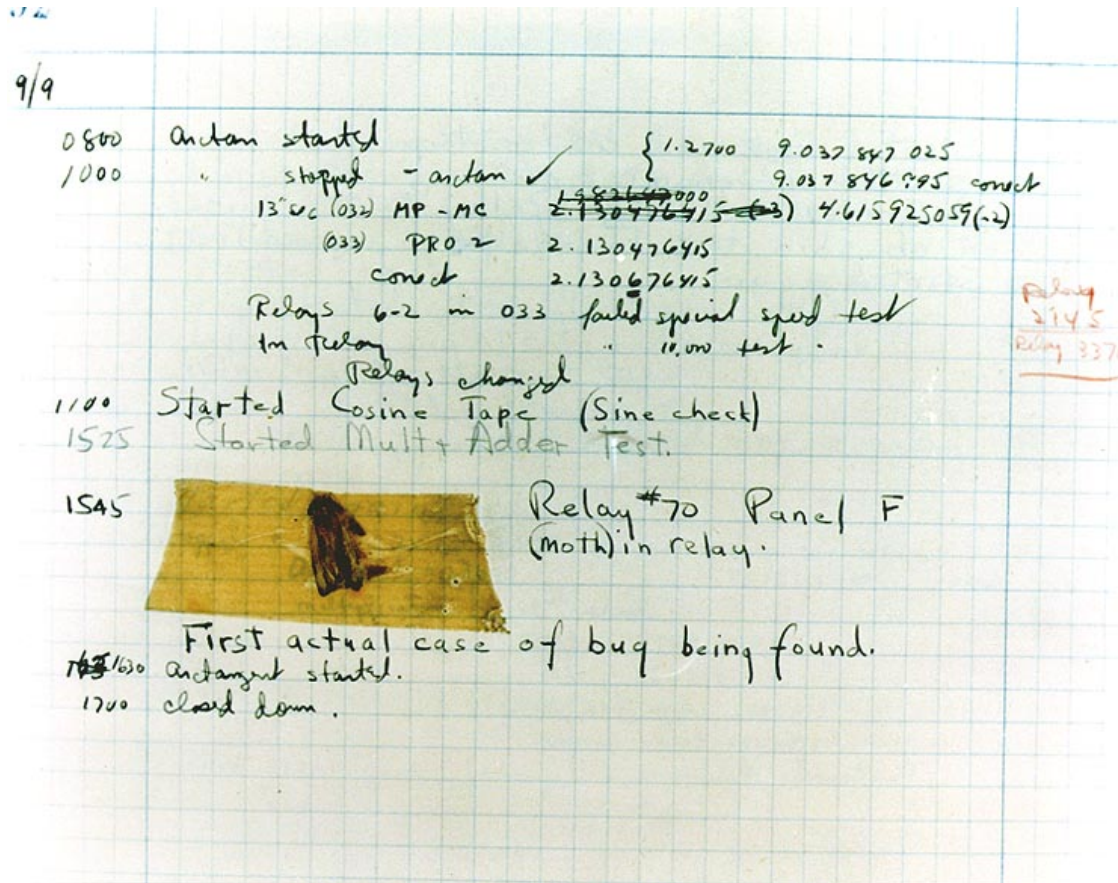 9/9
0800 arctan started { 1.2700 9.037 847 025
1000 " stopped - arctan ✓ 9.037 846 795 correct
13"uc (032) MP - MC 2.130476415 (-3) 4.615925059(-2)
(033) PRO 2 2.130476415
correct 2.130676415
Relays 6-2 in 033 failed special speed test
In Relay " 10,000 test .
Relay
2145
Relay 337
Relays changed
1100 Started Cosine Tape (Sine check)
1525 Started Mult+ Adder Test.
1545 Relay #70 Panel F
(moth) in relay.
First actual case of bug being found.
1630 arctangent started.
1700 closed down.